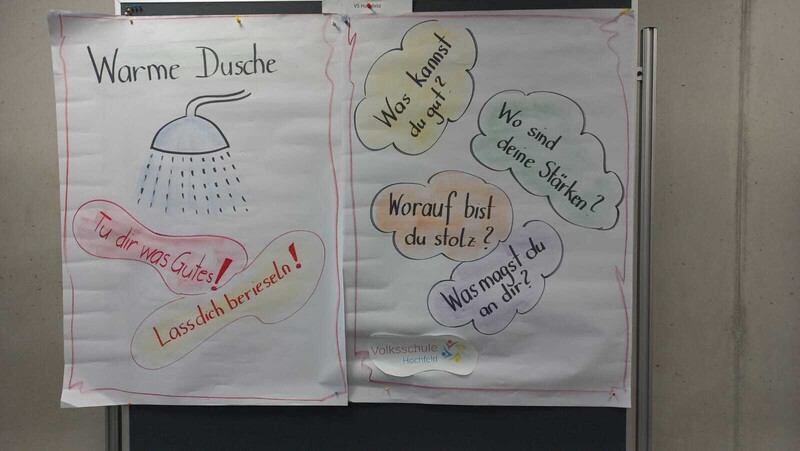 VS Hochfeld
Warme Dusche
Tu dir was Gutes!
Lass dich berieseln!
Was kannst
du gut?
Wo sind
deine Stärken?
Worauf bist
du stolz?
Was magst du
an dir?
Volksschule
Hochfeld